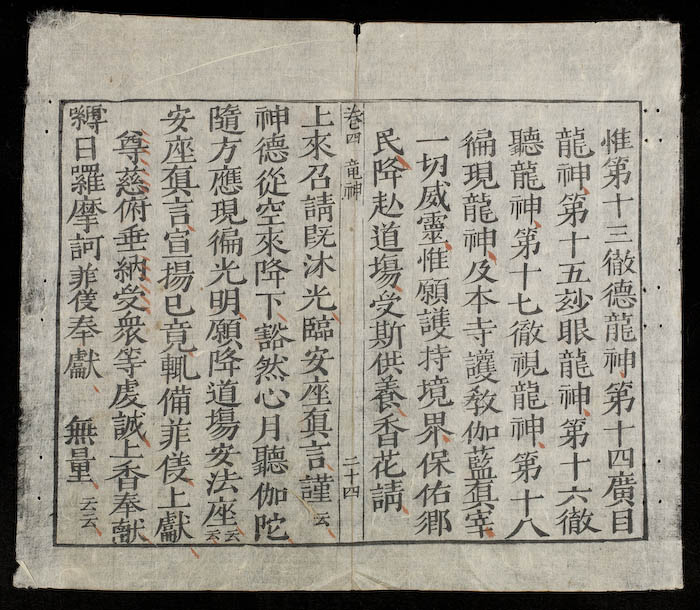 惟第十三徹德龍神第十四廣目
龍神第十五玅眼龍神第十六徹
聽龍神第十七徹視龍神第十八
徧現龍神及本寺護教伽藍眞宰
一切威靈惟願護持境界保佑鄉
民降赴道塲受斯供養香花請
卷四 竜神 二十四
上來召請旣沐光臨安座眞言謹云
神德從空來降下豁然心月聽伽陀
隨方應現徧光明願降道塲安法座云云
安座眞言宣揚已竟輒備菲儀上獻
尊慈俯垂納受衆等虔誠上香奉獻
嚩日羅摩訶菲儀奉獻 無量云云